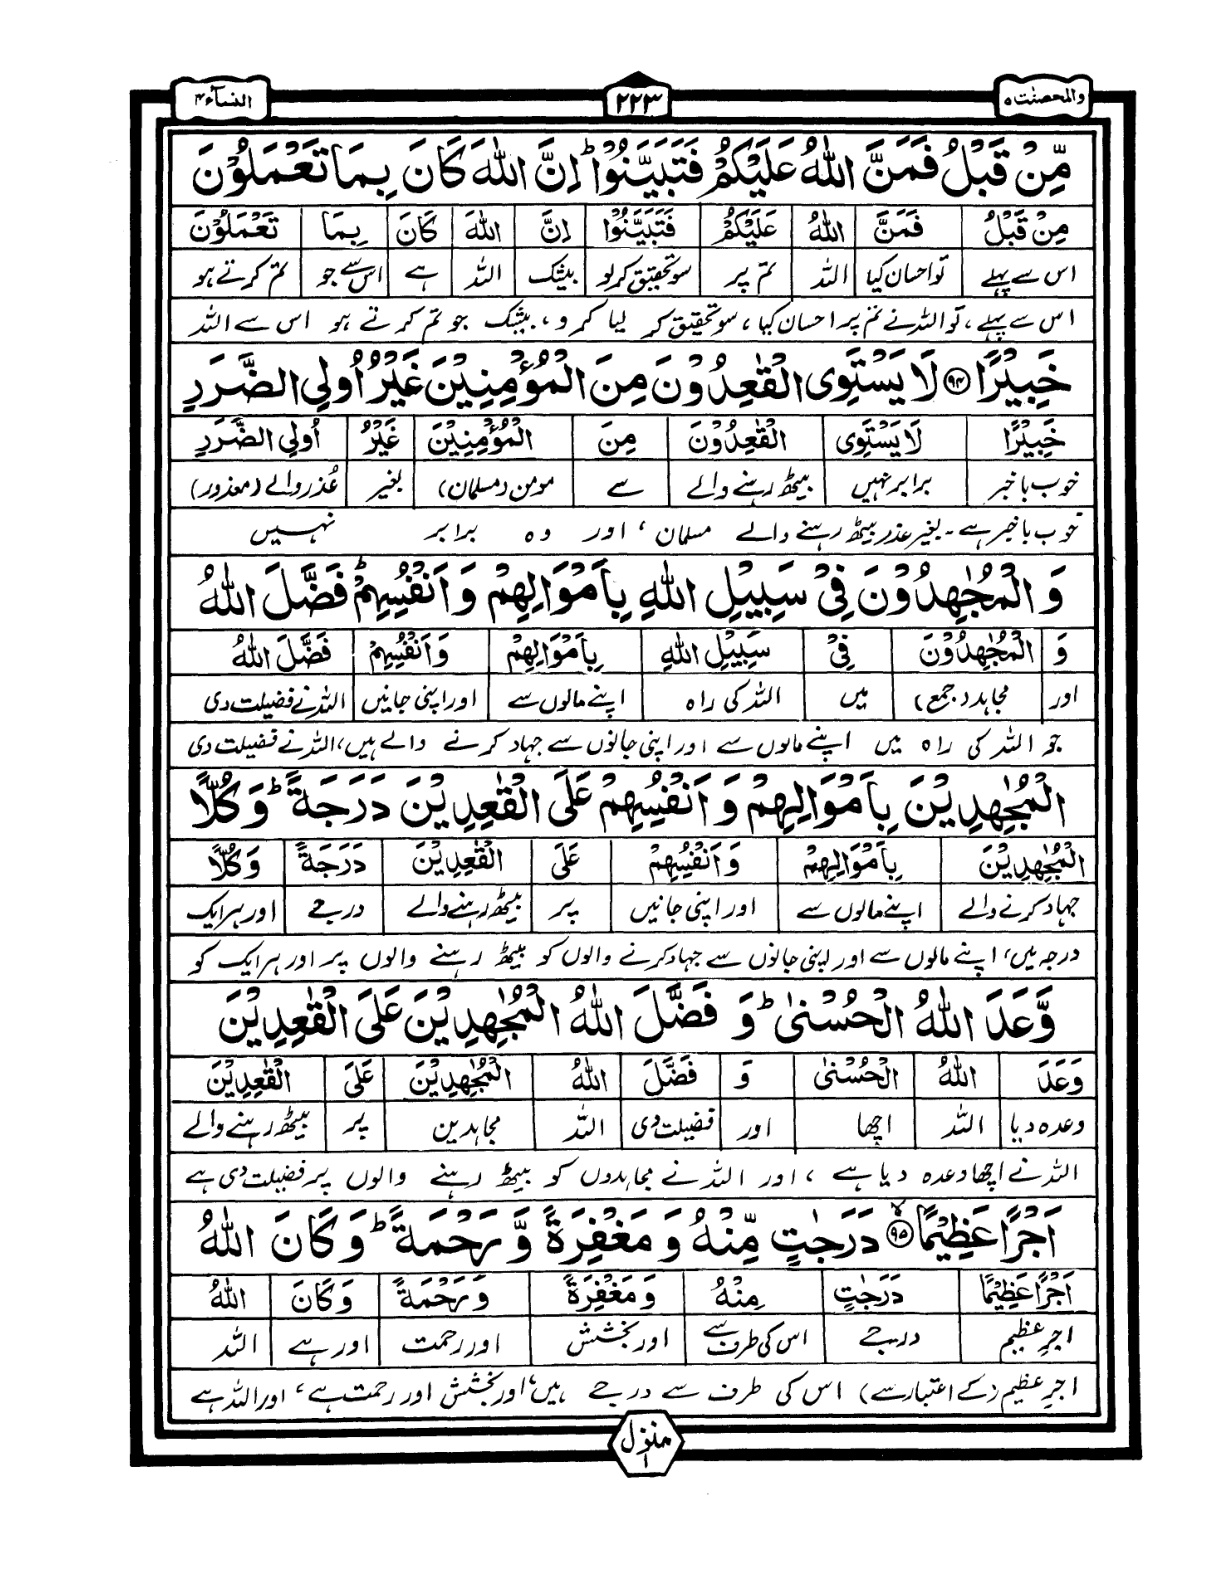 والمحصنٰت ۵
۲۲۳
النسآء ۴
مِّنْ قَبْلُ فَمَنَّ اللّٰهُ عَلَيْكُمْ فَتَبَيَّنُوْا ؕ اِنَّ اللّٰهَ كَانَ بِمَا تَعْمَلُوْنَ
مِنْ قَبْلُ فَمَنَّ اللّٰهُ عَلَيْكُمْ فَتَبَيَّنُوْا اِنَّ اللّٰهَ كَانَ بِمَا تَعْمَلُوْنَ
اس سے پہلے تو احسان کیا اللہ تم پر سو تحقیق کرلو بیشک اللہ ہے اس سے جو تم کرتے ہو
اس سے پہلے، تو اللہ نے تم پر احسان کیا، سو تحقیق کر لیا کرو، بیشک جو تم کرتے ہو اس سے اللہ
خَبِيْرًا ۹۴ لَا يَسْتَوِى الْقٰعِدُوْنَ مِنَ الْمُؤْمِنِيْنَ غَيْرُ اُولِي الضَّرَرِ
خَبِيْرًا لَا يَسْتَوِى الْقٰعِدُوْنَ مِنَ الْمُؤْمِنِيْنَ غَيْرُ اُولِي الضَّرَرِ
خوب باخبر برابر نہیں بیٹھ رہنے والے سے مومن (مسلمان) بغیر عُذر والے (معذور)
خوب باخبر ہے۔ بغیر عذر بیٹھ رہنے والے مسلمان ، اور وہ برابر نہیں
وَ الْمُجٰهِدُوْنَ فِيْ سَبِيْلِ اللّٰهِ بِاَمْوَالِهِمْ وَ اَنْفُسِهِمْ ؕ فَضَّلَ اللّٰهُ
وَ الْمُجٰهِدُوْنَ فِيْ سَبِيْلِ اللّٰهِ بِاَمْوَالِهِمْ وَ اَنْفُسِهِمْ فَضَّلَ اللّٰهُ
اور مجاہد (جمع) میں اللہ کی راہ اپنے مالوں سے اور اپنی جانیں اللہ نے فضیلت دی
جو اللہ کی راہ میں اپنے مالوں سے اور اپنی جانوں سے جہاد کرنے والے ہیں، اللہ نے فضیلت دی
الْمُجٰهِدِيْنَ بِاَمْوَالِهِمْ وَ اَنْفُسِهِمْ عَلَى الْقٰعِدِيْنَ دَرَجَةً ؕ وَ كُلًّا
الْمُجٰهِدِيْنَ بِاَمْوَالِهِمْ وَ اَنْفُسِهِمْ عَلَى الْقٰعِدِيْنَ دَرَجَةً وَ كُلًّا
جہاد کرنے والے اپنے مالوں سے اور اپنی جانیں پر بیٹھ رہنے والے درجے اور ہر ایک
درجہ میں، اپنے مالوں سے اور اپنی جانوں سے جہاد کرنے والوں کو بیٹھ رہنے والوں پر اور ہر ایک کو
وَّعَدَ اللّٰهُ الْحُسْنٰى ؕ وَ فَضَّلَ اللّٰهُ الْمُجٰهِدِيْنَ عَلَى الْقٰعِدِيْنَ
وَعَدَ اللّٰهُ الْحُسْنٰى وَ فَضَّلَ اللّٰهُ الْمُجٰهِدِيْنَ عَلَى الْقٰعِدِيْنَ
وعدہ دیا اللہ اچھا اور فضیلت دی اللہ مجاہدین پر بیٹھ رہنے والے
اللہ نے اچھا وعدہ دیا ہے ، اور اللہ نے مجاہدوں کو بیٹھ رہنے والوں پر فضیلت دی ہے
اَجْرًا عَظِيْمًا ۹۵ دَرَجٰتٍ مِّنْهُ وَ مَغْفِرَةً وَّ رَحْمَةً ؕ وَ كَانَ اللّٰهُ
اَجْرًا عَظِيْمًا دَرَجٰتٍ مِنْهُ وَ مَغْفِرَةً وَ رَحْمَةً وَ كَانَ اللّٰهُ
اجرِ عظیم درجے اس کی طرف سے اور بخشش اور رحمت اور ہے اللہ
اجرِ عظیم (کے اعتبار سے) اس کی طرف سے درجے ہیں، اور بخشش اور رحمت ہے، اور اللہ ہے
منزل ۱